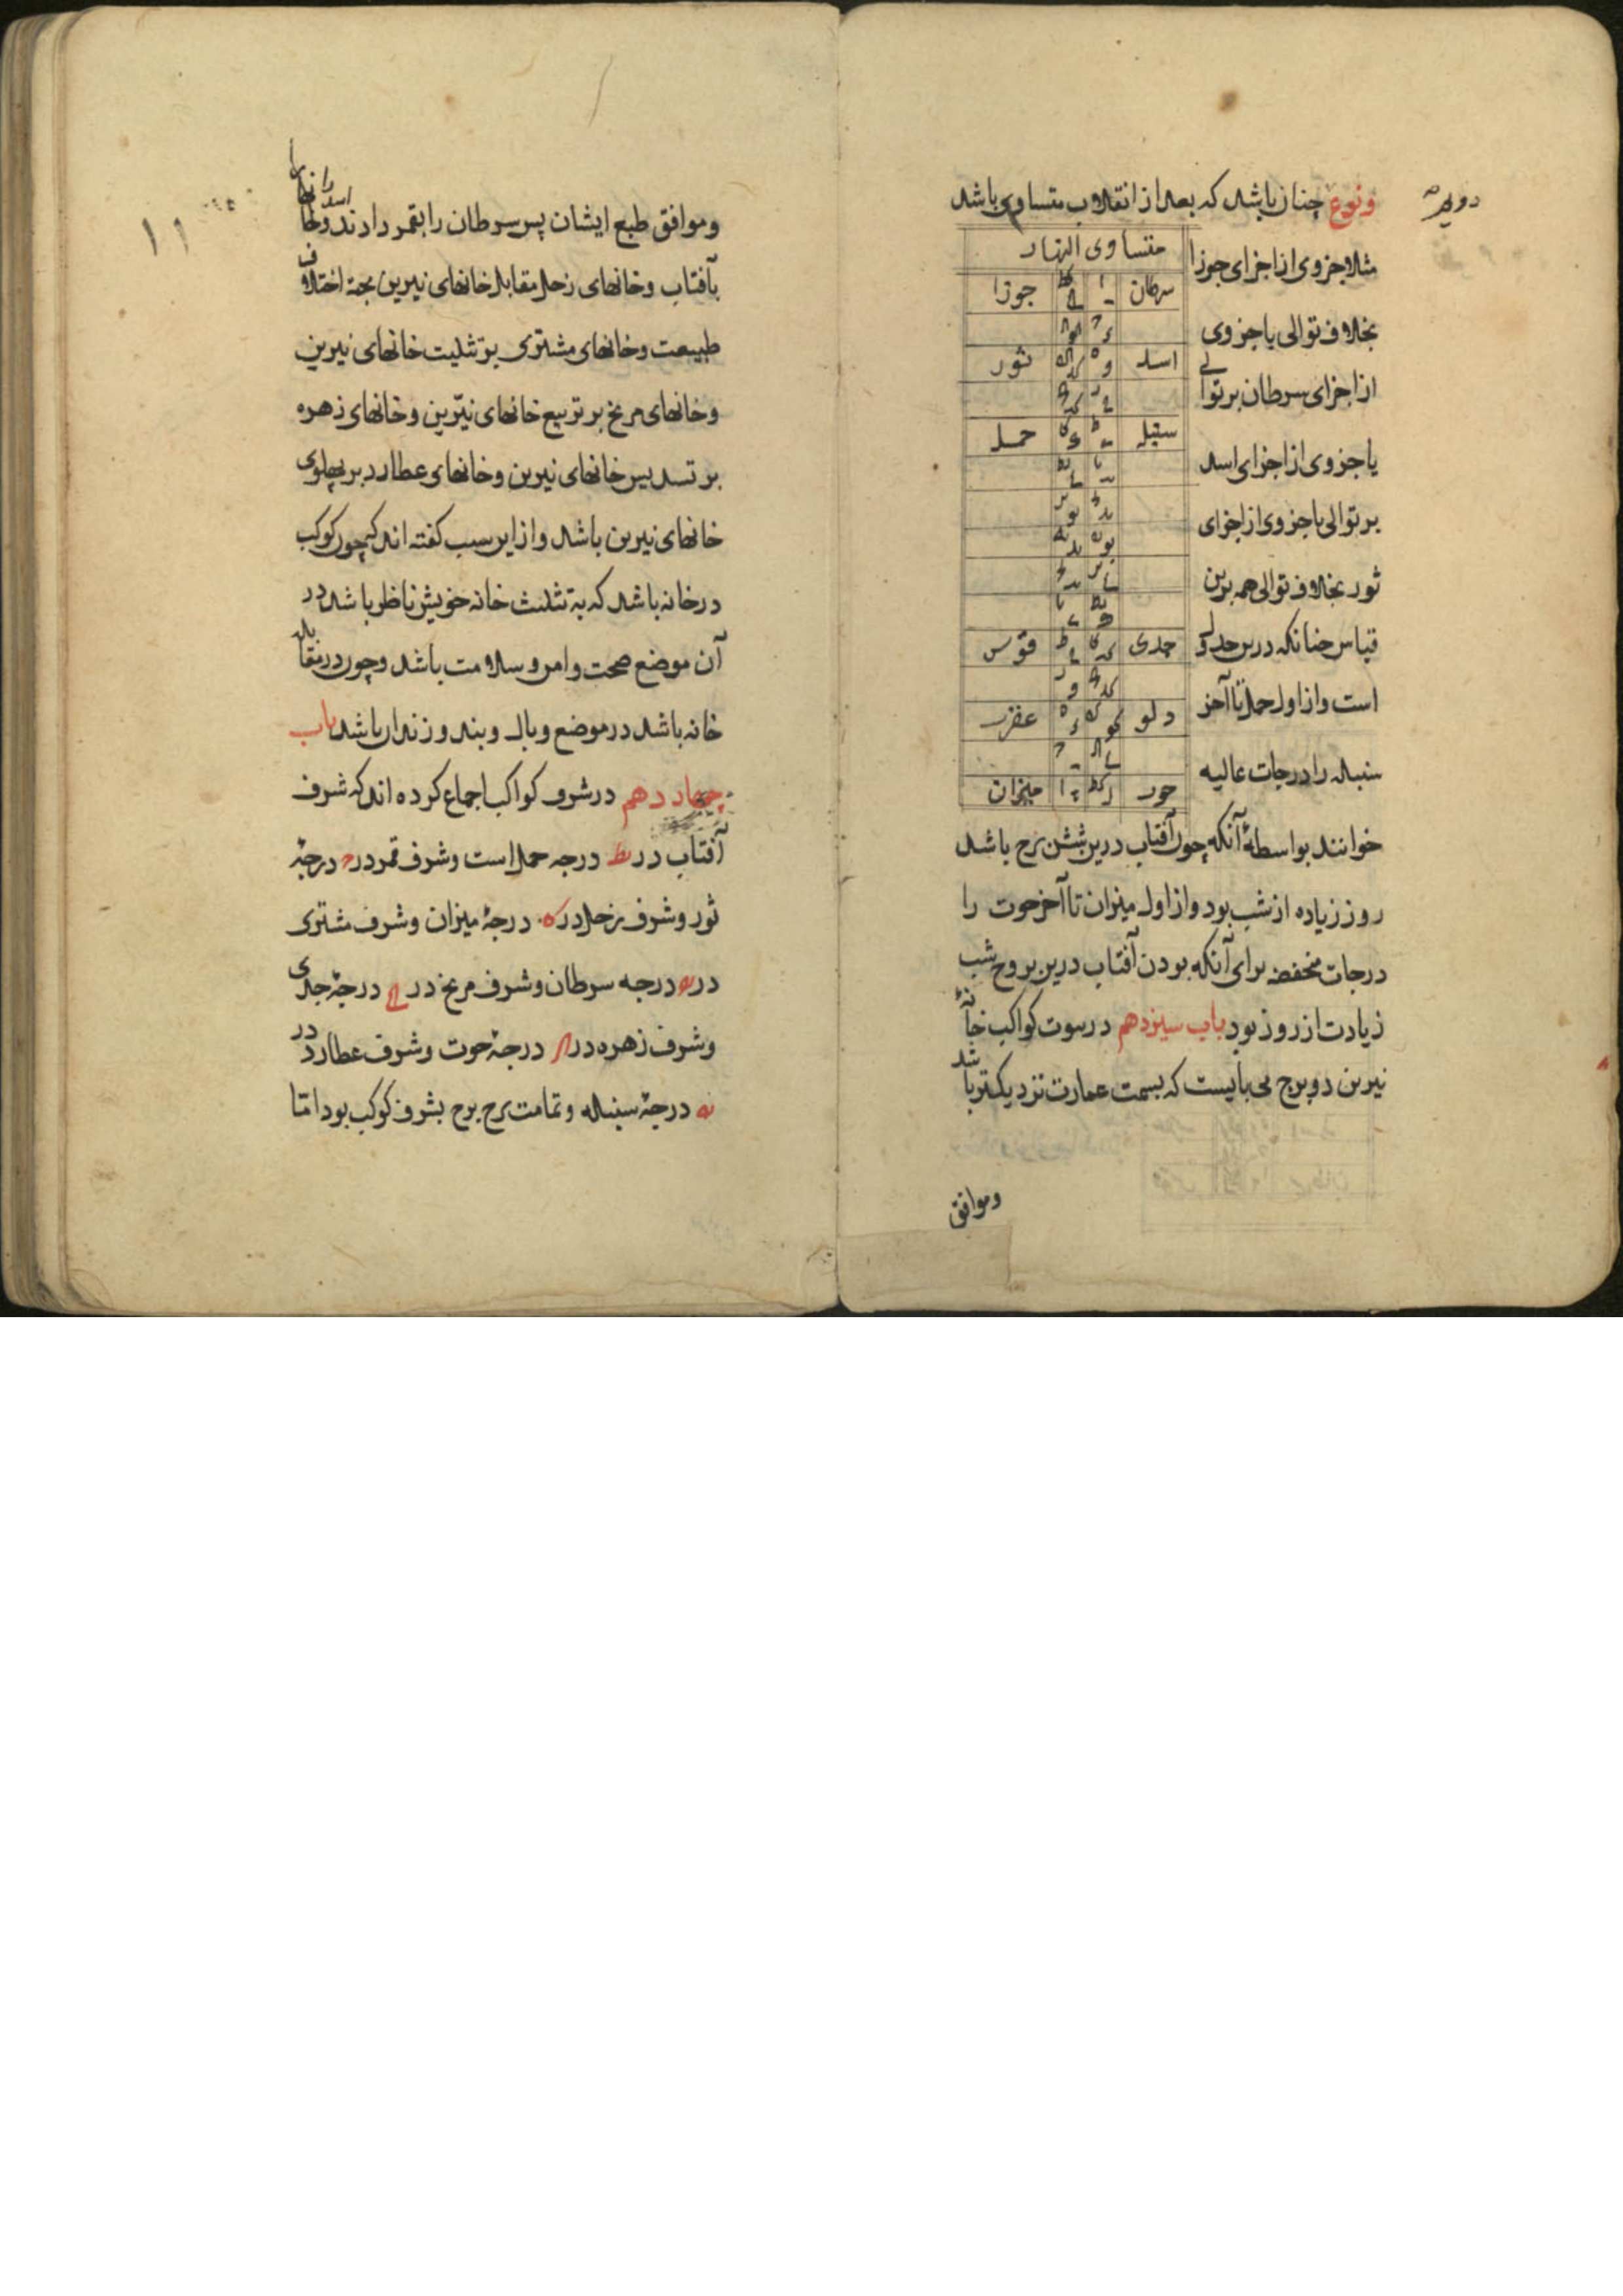 دویم
ونوع چنان باشد که بعد از انقلاب متساوی باشد
مثلا جزوی از اجزای جوزا
بخلاف توالی یا جزوی
از اجزای سرطان بر توالی
یا جزوی از اجزای اسد
بر توالی با جزوی از اجزای
ثور بخلاف توالی همه برین
قیاس چنانکه درین جدول
است و از اول حمل تا آخر
سنبله را درجات عالیه
متساوی النهار
سرطان جوزا
اسد ثور
سنبله حمل
جدی قوس
دلو عقرب
حوت میزان
خوانند بواسطهٔ آنکه چون آفتاب درین شش برج باشد
روز زیاده از شب بود و از اول میزان تا آخر حوت را
درجات منخفضه برای آنکه بودن آفتاب درین بروج شب
زیادت از روز بود باب سیزدهم در بیوت کواکب خانهٔ
نیرین دو برج می بایست که بسمت عمارت نزدیکتر باشد
وموافق
۱۱
وموافق طبع ایشان پس سرطان را بقمر دادند و اسد را
بآفتاب و خانهای زحل مقابل خانهای نیرین بجهة اختلاف
طبیعت و خانهای مشتری بر تثلیث خانهای نیرین
و خانهای مریخ بر تربیع خانهای نیّرین و خانهای زهره
بر تسدیس خانهای نیرین و خانهای عطارد بر پهلوی
خانهای نیرین باشد و از این سبب گفته اند که چون کوکب
در خانه باشد که به تثلیث خانه خویش ناظر باشد در
آن موضع صحت و امن و سلامت باشد و چون در مقابله
خانه باشد در موضع وبال و بند و زندان باشد باب
چهاردهم در شرف کواکب اجماع کرده اند که شرف
آفتاب در یط درجه حمل است و شرف قمر در ح درجهٔ
ثور و شرف زحل در کا درجهٔ میزان و شرف مشتری
در یه درجه سرطان و شرف مریخ در کح درجهٔ جدی
و شرف زهره در کز درجهٔ حوت و شرف عطارد در
یه درجهٔ سنبله و تمامت برج برج بشرف کوکب بود اما